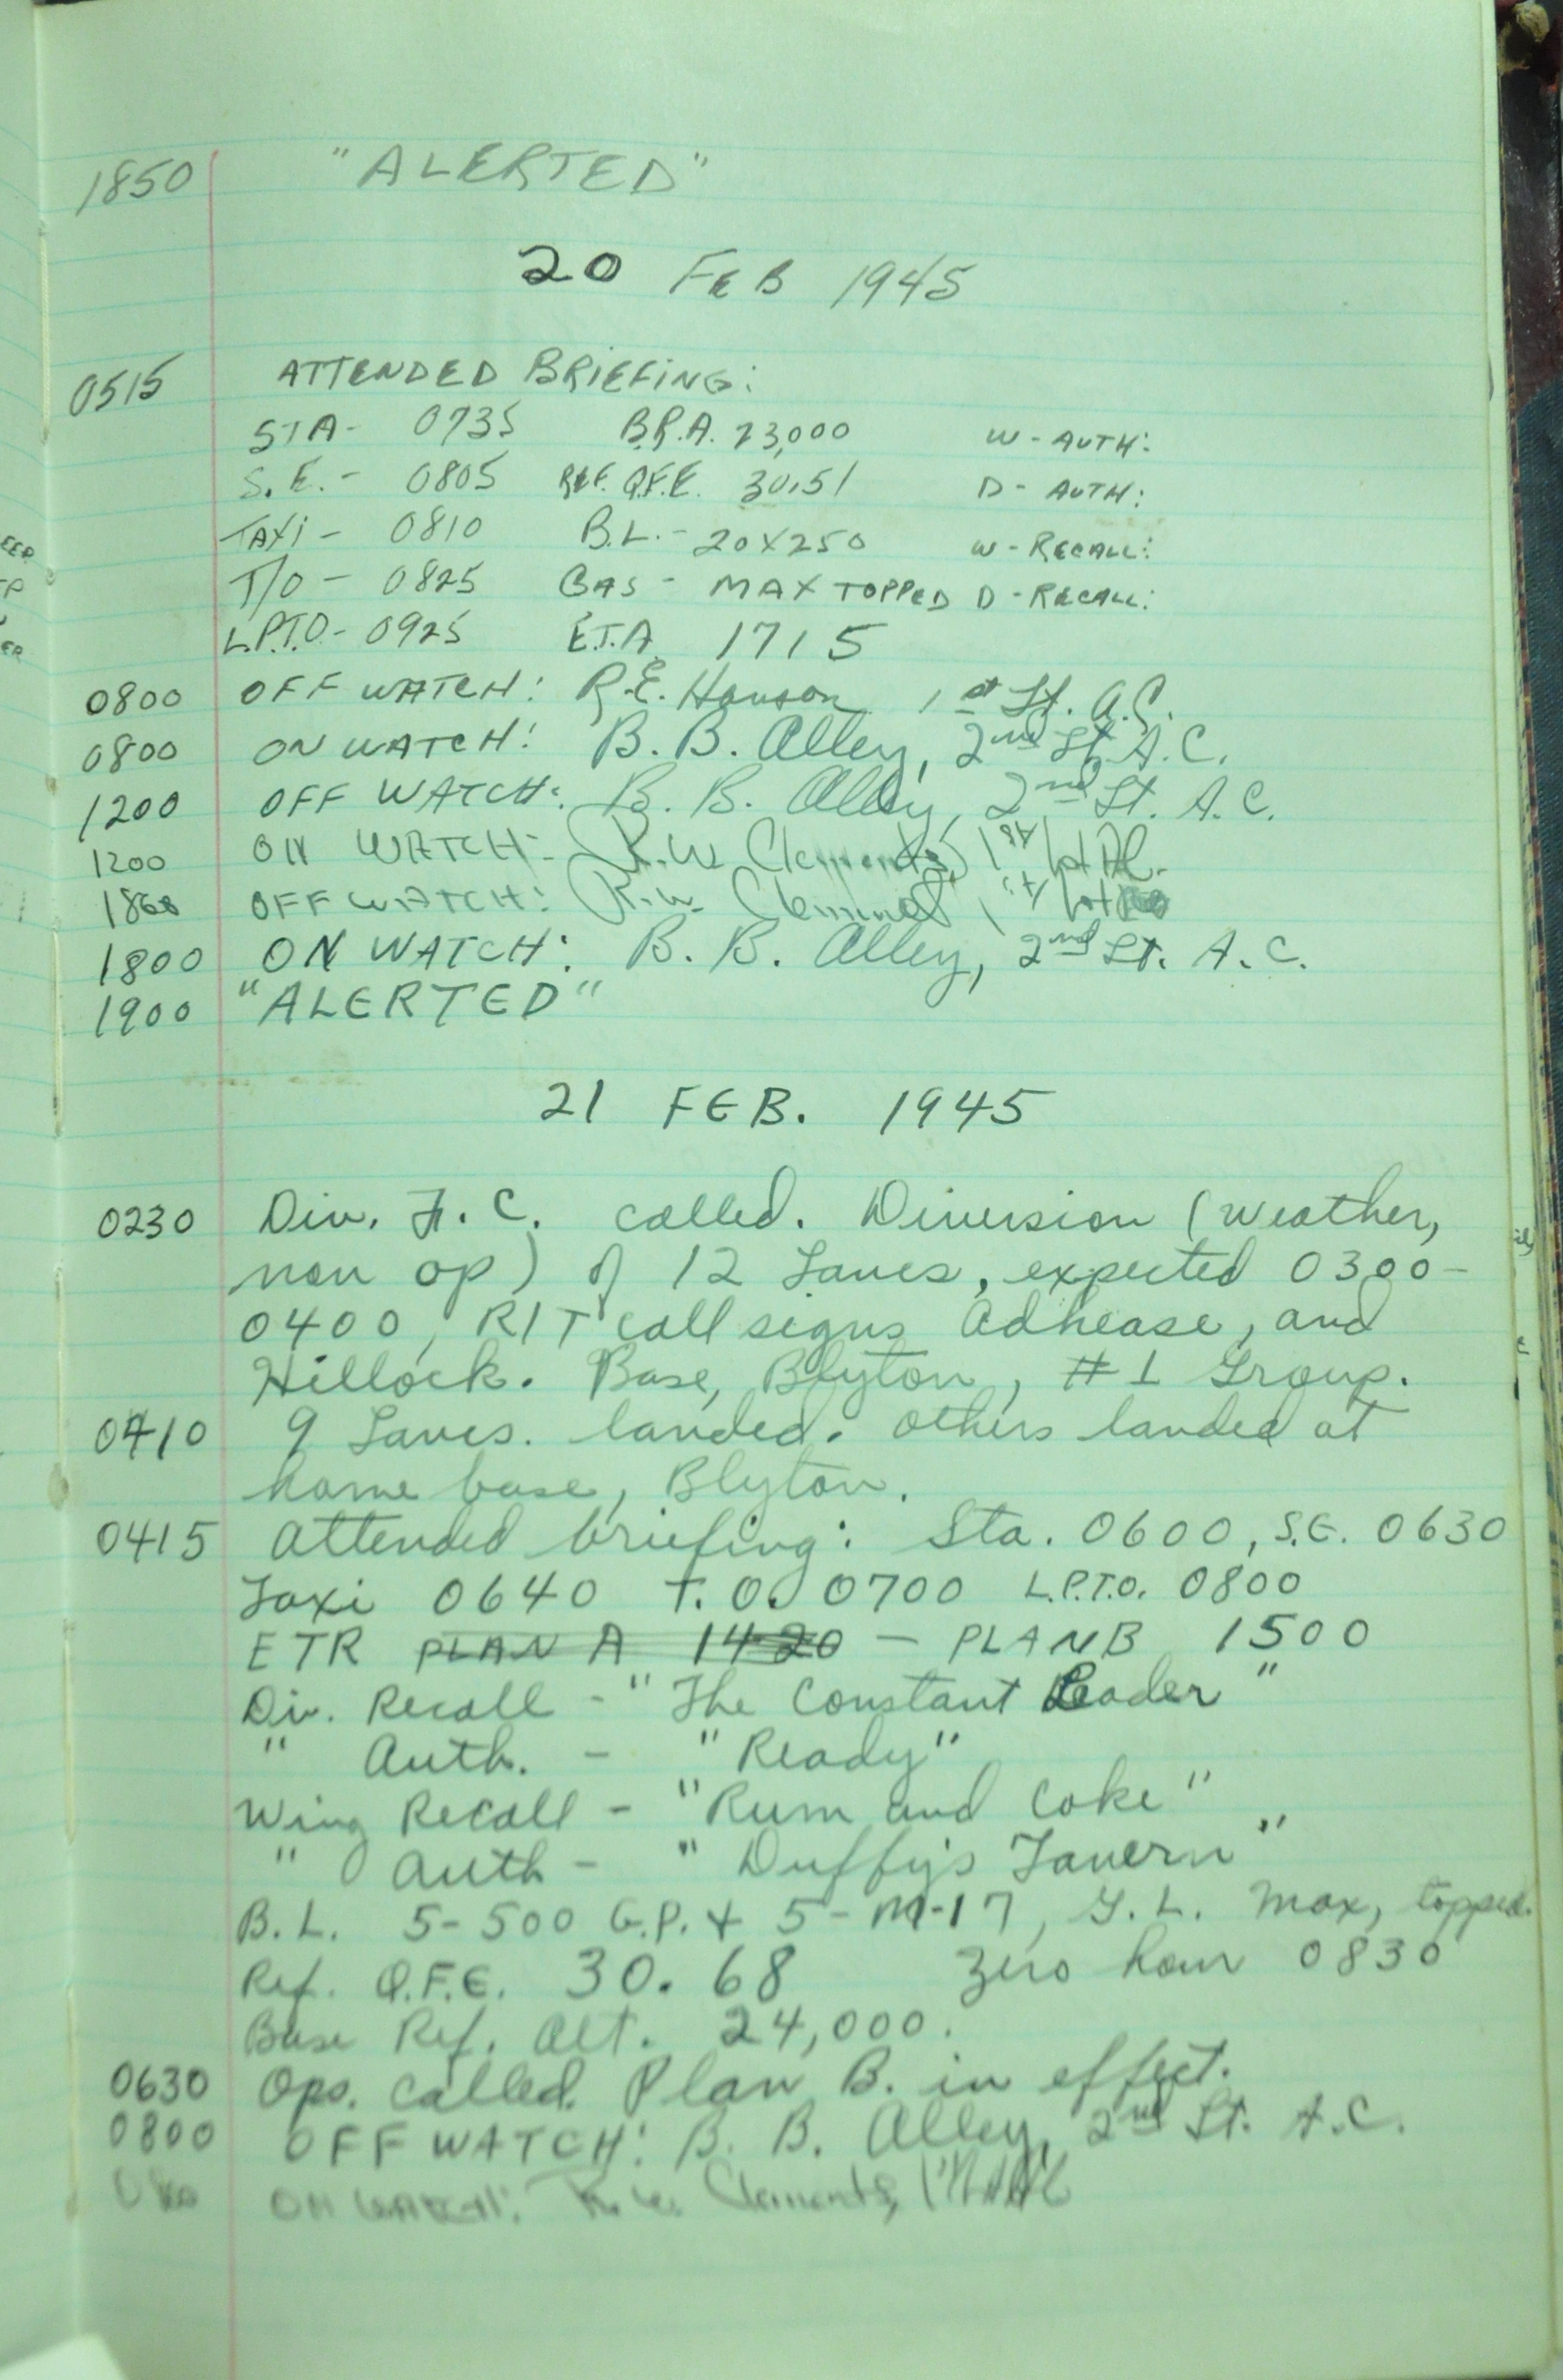 1850 "ALERTED"
20 FEB 1945
0515 ATTENDED BRIEFING:
STA- 0735 B.R.A. 23,000 W-AUTH:
S.E.- 0805 REF. Q.F.E. 30.51 D-AUTH:
TAXI- 0810 B.L.- 20X250 W-RECALL:
T/O- 0825 GAS- MAX TOPPED D-RECALL:
L.P.T.O.- 0925 E.T.A. 1715
0800 OFF WATCH: R.E. Hanson 1st Lt. A.C.
0800 ON WATCH: B. B. Alley, 2nd Lt. A.C.
1200 OFF WATCH: B. B. Alley, 2nd Lt. A.C.
1200 ON WATCH- R.W. Clements, 1st Lt AC.
OFF WATCH: R.W. Clements, 1st Lt
1800 ON WATCH: B. B. Alley, 2nd Lt. A.C.
1900 "ALERTED"
21 FEB. 1945
0230 Div. F.C. called. Diversion (weather,
non op) of 12 Lancs, expected 0300-
0400, R/T call signs Adhease, and
Hillock. Base, Blyton, #1 Group.
0410 9 Lancs. landed. Others landed at
home base, Blyton.
0415 Attended briefing: Sta. 0600, S.E. 0630
Taxi 0640 T.O. 0700 L.P.T.O. 0800
ETR PLAN A 1420 - PLAN B 1500
Div. Recall - "The Constant Leader"
" Auth. - "Ready"
Wing Recall - "Rum and Coke"
" Auth - "Duffy's Tavern"
B.L. 5-500 G.P. + 5-M-17, G.L. Max, topped.
Ref. Q.F.E. 30.68 Zero hour 0830
Base Ref. Alt. 24,000.
0630 Ops. called. Plan B. in effect.
0800 OFF WATCH: B. B. Alley, 2nd Lt. A.C.
ON WATCH: R.W. Clements,